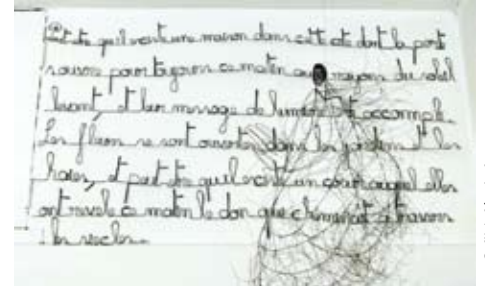 Peut être qu'il existe une maison dans cette cité dont la porte
s'ouvre pour toujours ce matin aux rayons du soleil
levant, et leur message de lumière est accompli.
Les fleurs se sont ouvertes dans les jardins et les
haies, et peut être qu'il existe un cœur auquel elles
ont révélé ce matin le don que cheminait à travers
les siècles.